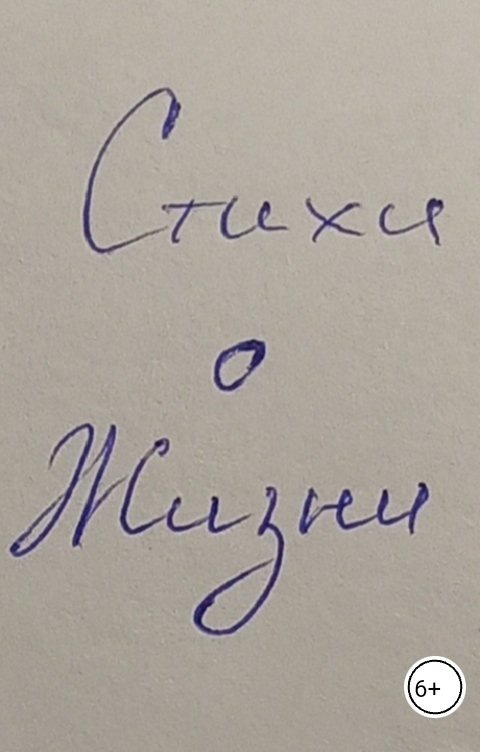 Стихи
о
Жизни
6+